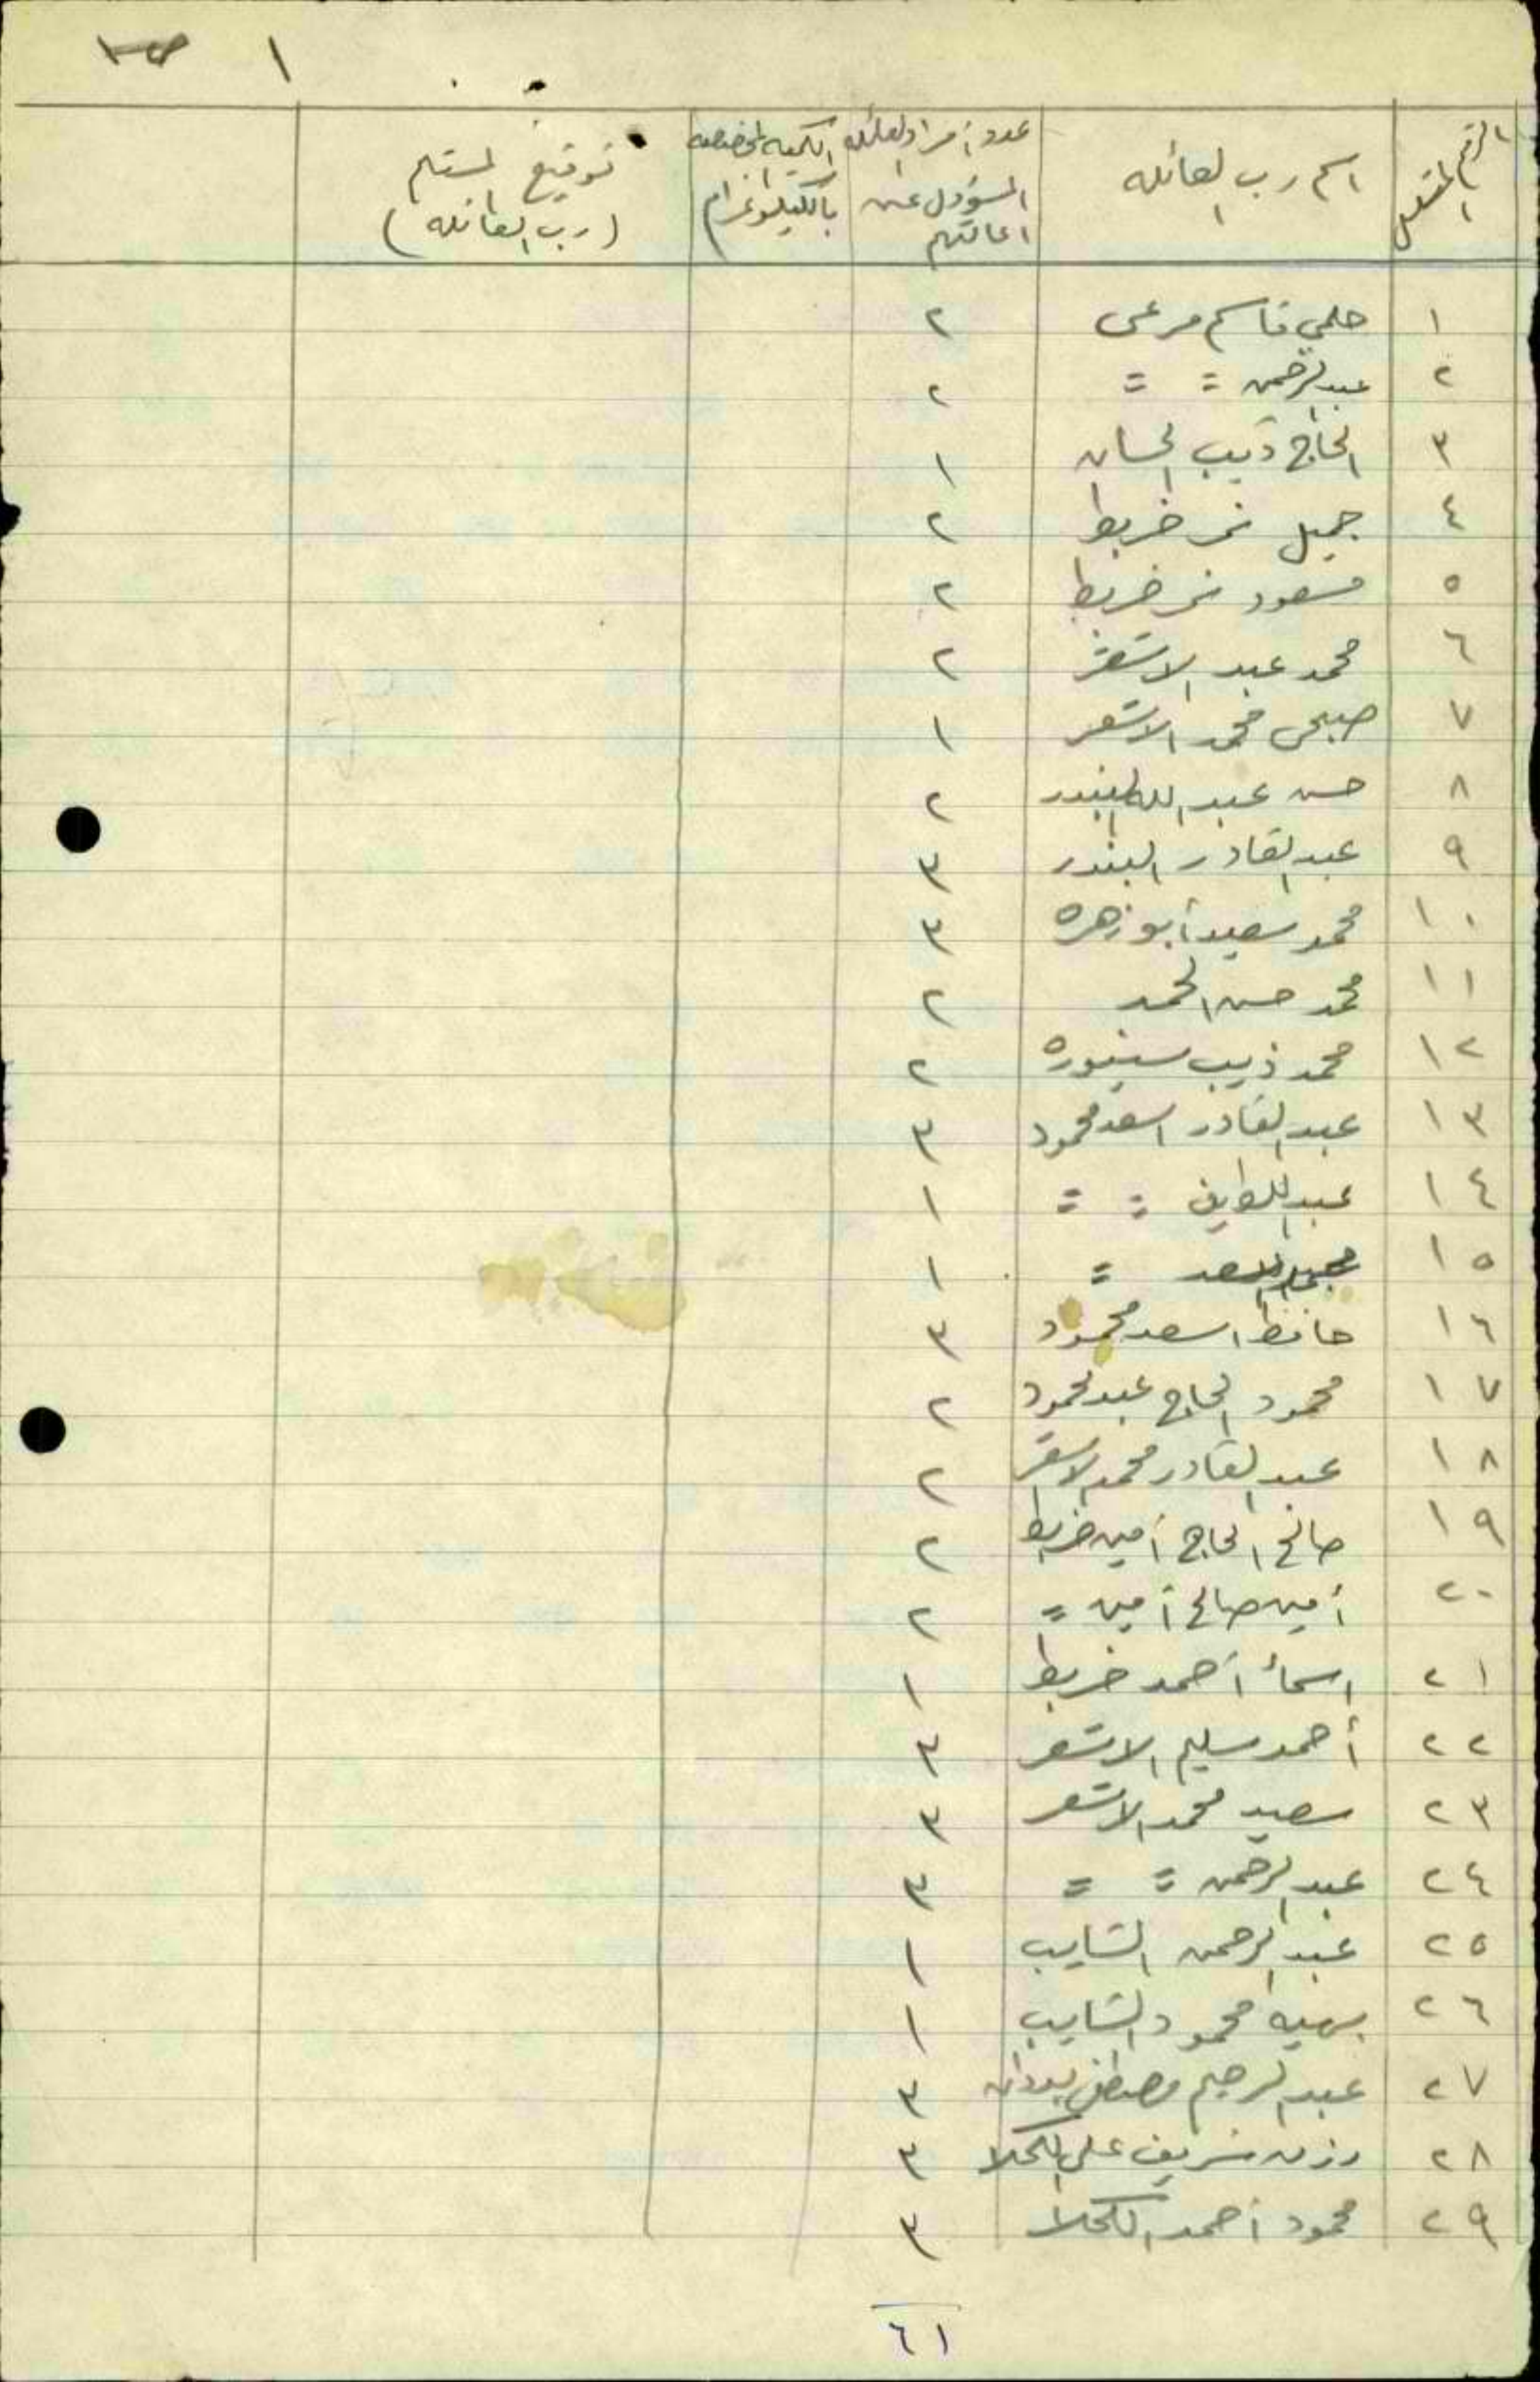 ١ ص١
الرقم المتسلسل	اسم رب العائله	عدد أفراد العائله المسؤول عن اعالتهم	الكميه المخصصه بالكيلوغرام	توقيع المستلم (رب العائله)
١	حلمي قاسم مرعي	٢
٢	عبد الرحمن = =	٢
٣	الحاج ذيب الحسان	١
٤	جميل نمر خربط	٢
٥	مسعود نمر خربط	٢
٦	محمد عبد الاشقر	٢
٧	صبحي محمد الاشقر	١
٨	حسن عبد الله البندر	٢
٩	عبد القادر البندر	٣
١٠	محمد سعيد أبو زهره	٣
١١	محمد حسن المحمد	٢
١٢	محمد ذيب سنيوره	٢
١٣	عبد القادر اسعد محمود	٣
١٤	عبد اللطيف = =	١
١٥	=	١
١٦	حافظ اسعد محمود	٣
١٧	محمود الحاج عبد المحمود	٢
١٨	عبد القادر محمد الاشقر	٢
١٩	صالح الحاج أمين خربط	٢
٢٠	أمين صالح أمين =	٢
٢١	اسمأ أحمد خربط	١
٢٢	أحمد سليم الاشقر	٣
٢٣	سعيد محمد الاشقر	٣
٢٤	عبد الرحمن = =	٣
٢٥	عبد الرحمن الشايب	١
٢٦	بهيه محمود الشايب	١
٢٧	عبد الرحيم مصطفى	٣
٢٨	شريف علي الكحلا	٣
٢٩	محمود أحمد الكحلا	٣
٦١